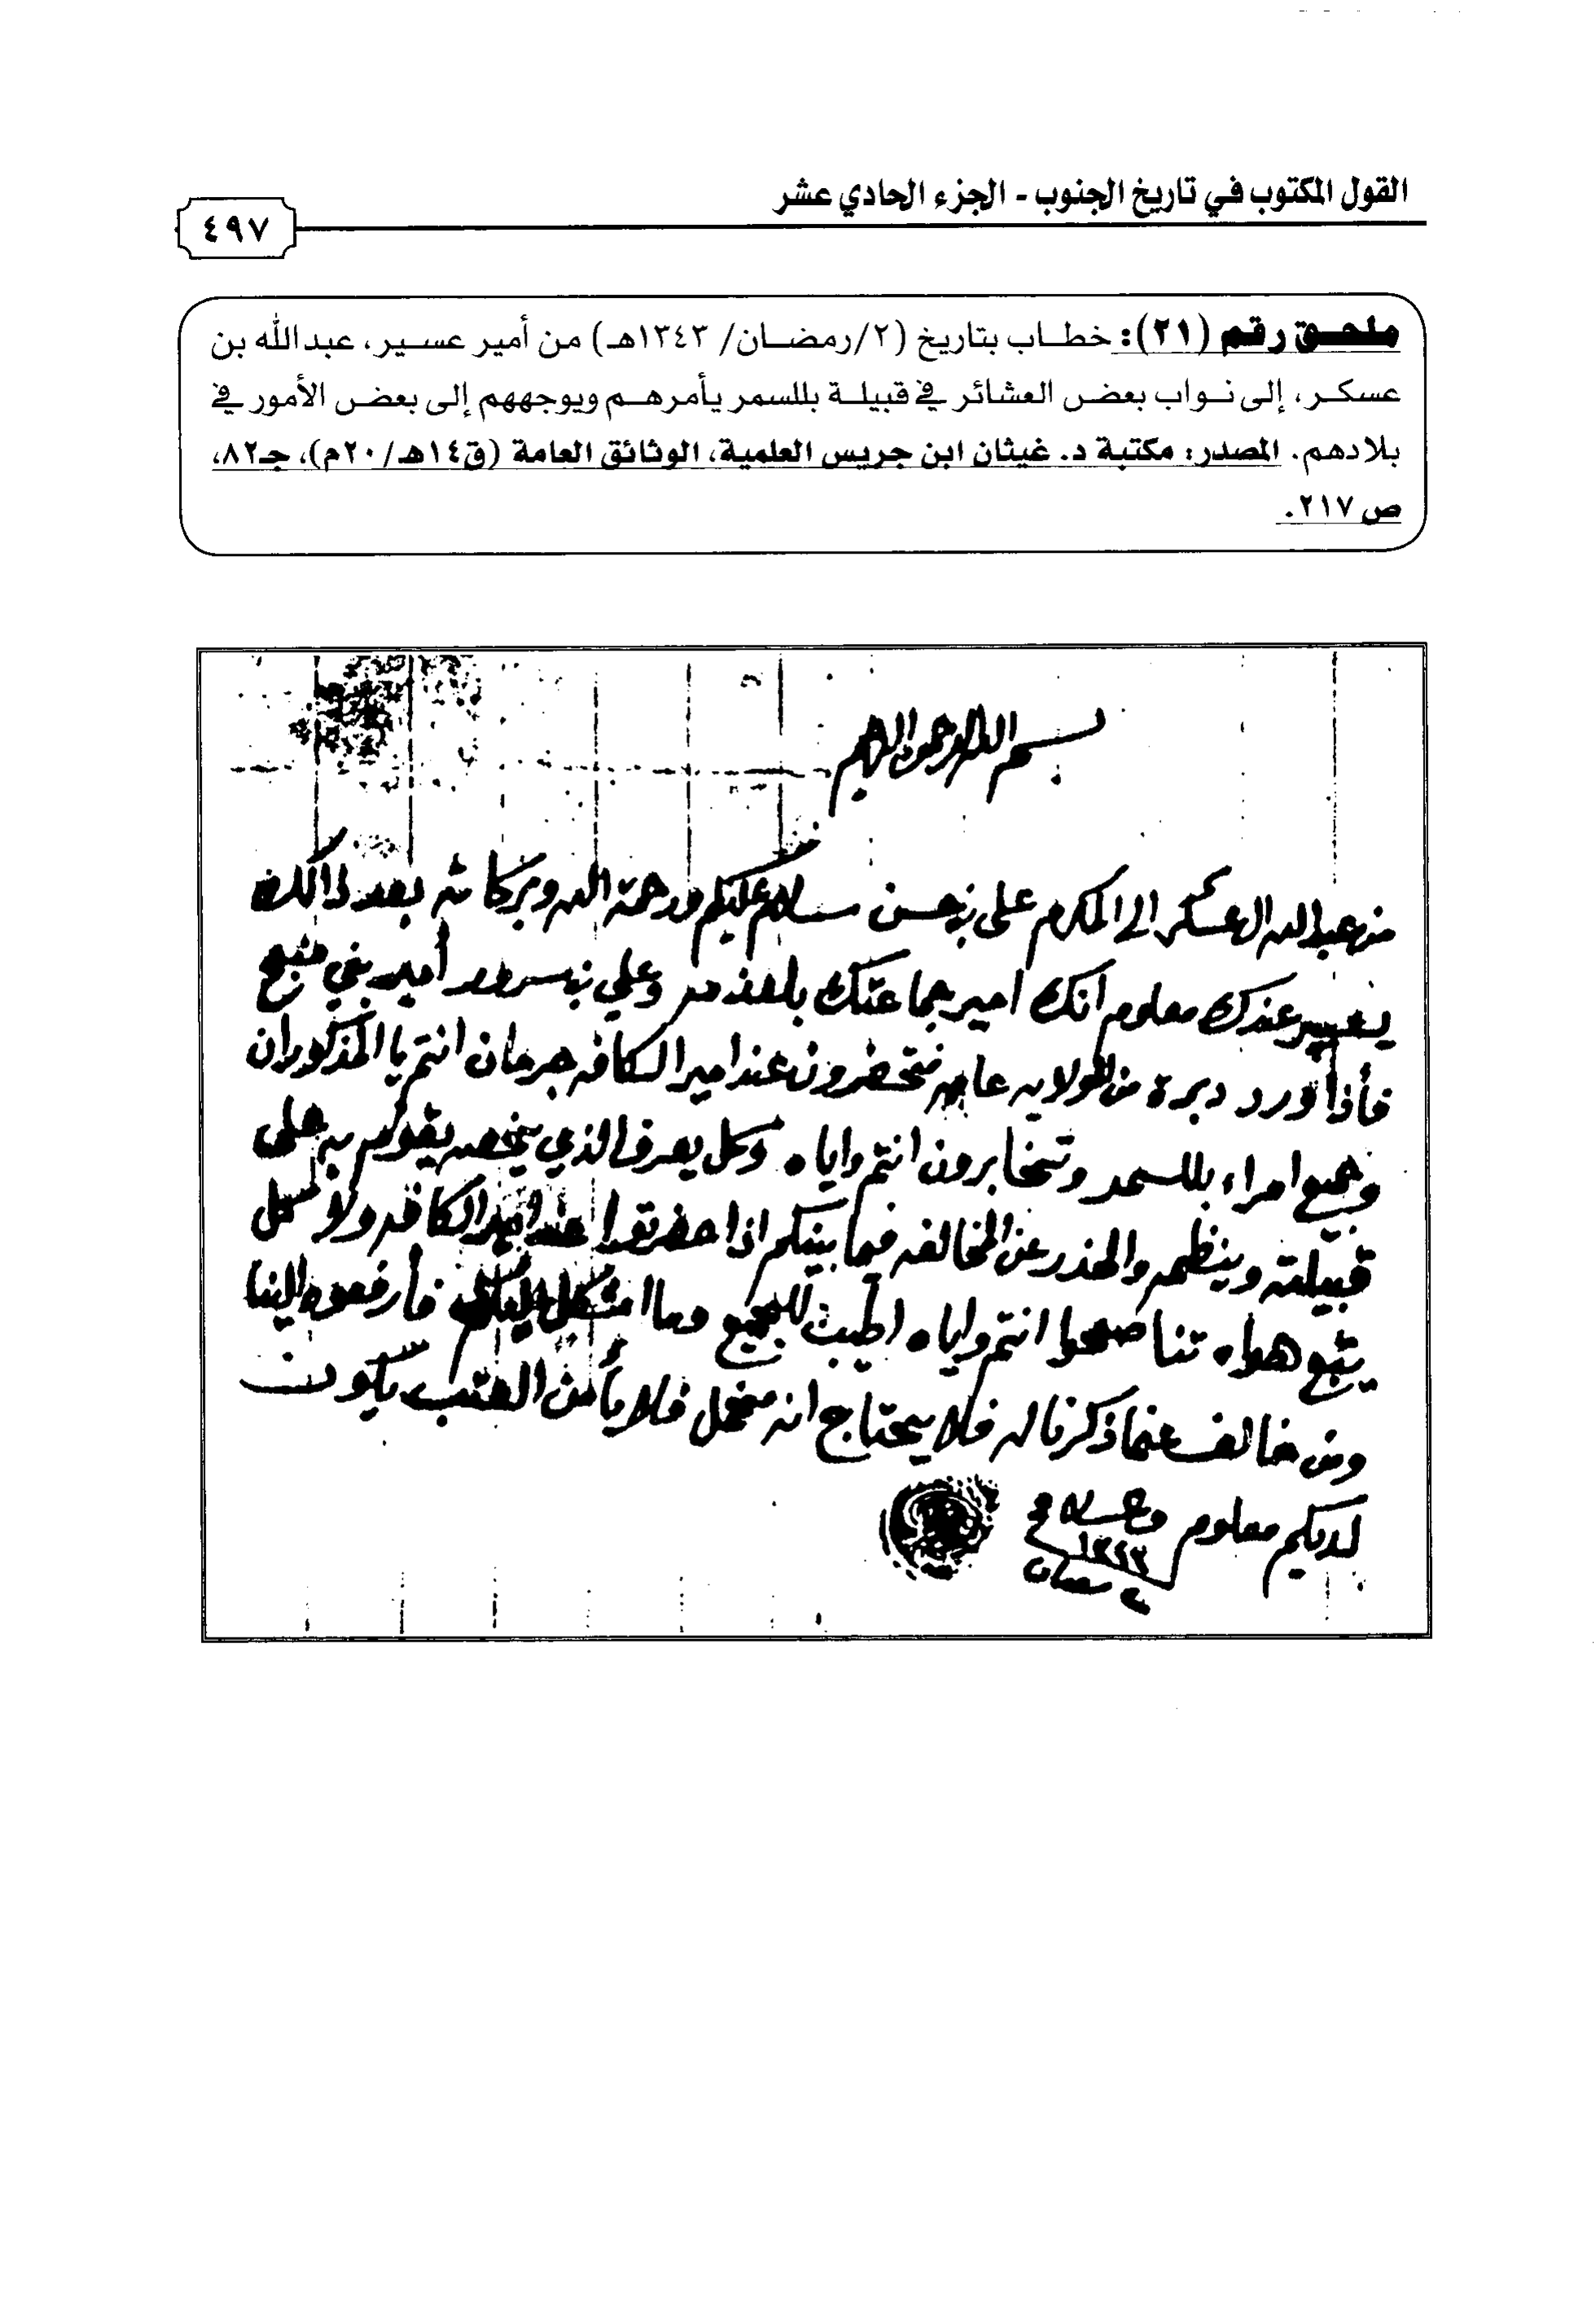 القول المكتوب في تاريخ الجنوب - الجزء الحادي عشر
٤٩٧
ملحق رقم (٢١): خطاب بتاريخ (٢/رمضان/ ١٣٤٣هـ) من أمير عسير، عبدالله بن
عسكر، إلى نواب بعض العشائر في قبيلة بللسمر يأمرهم ويوجههم إلى بعض الأمور في
بلادهم. المصدر: مكتبة د. غيثان ابن جريس العلمية، الوثائق العامة (ق١٤هـ/٢٠م)، جـ٨٢،
ص ٢١٧.
بسم الله الرحمن الرحيم
من عبدالله العسكر الى المكرم علي بن حسن سلام عليكم ورحمة الله وبركاته بعد ذالك
عندك معلوم انك امير جماعتك وعلي بن سرور أمير بني منبح
فأذا ورد دبرة من الولايه عامه تحضرون عند امير الكافه جرمان انتم يا المذكوران
وجميع امراء بللسمر وتتخابرون انتم واياه وكل يعرف الذي يخصه يقوم به على
قبيلته وينظمه والحذر عن المخالفه فيما بينكم اذا حضرتوا عند امير الكافه ولا كل
يتبع هواه تناصحوا انتم واياه اطيب للجميع وما اشكل عليكم فأرفعوه الينا
ومن خالف عنما ذكرنا له فلا يحتاج انه مخمل فلا يأمن العتب يكون
لديكم معلوم والسلام
١٣٤٣
٢ رمضان